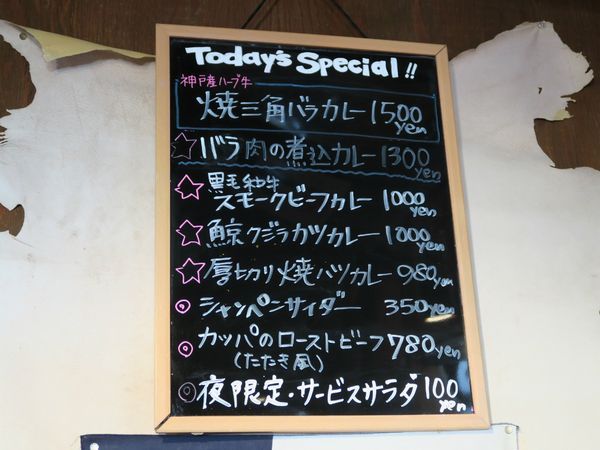 Today's Special!!
神戸産ハーブ牛
焼三角バラカレー 1500yen
バラ肉の煮込カレー 1300yen
黒毛和牛
スモークビーフカレー 1000yen
鯨クジラカツカレー 1000yen
厚切り焼ハツカレー 980yen
シャンペンサイダー 350yen
カッパのローストビーフ 780yen
(たたき風)
夜限定・サービスサラダ 100yen